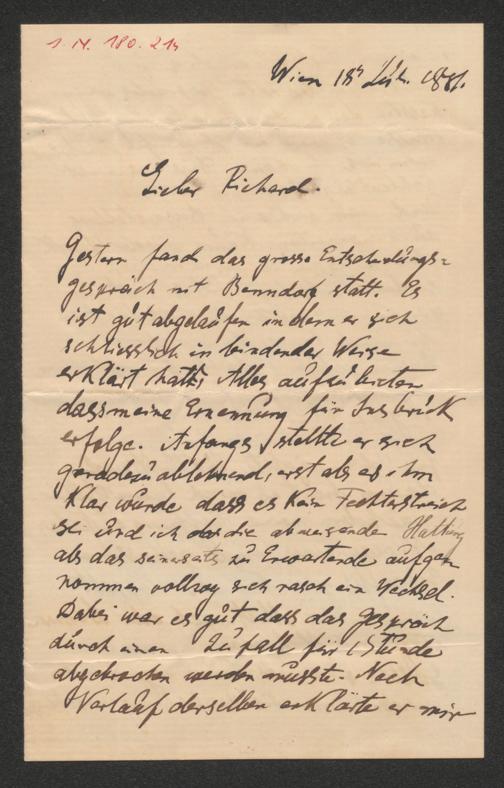 I. N. 180.214
Wien 18t Juli 1881.
Lieber Richard.
Gestern fand das grosse Entscheidungs=
gespräch mit Benndorf statt. Es
ist gut abgelaufen indem er sich
schliesslich in bindender Weise
erklärt hatte, Alles aufzubieten
dass meine Ernennung für Insbruck
erfolge. Anfangs stellte er sich
geradezu ablehnend, erst als es ihm
klar wurde dass es kein Fechterstreich
sei und ich die abweisende Haltung
als das seinerseits zu Erwartende aufge
nommen vollzog sich rasch ein Wechsel.
Dabei war es gut dass das Gespräch
durch einen Zufall für 1 Stunde
abgebrochen werden musste. Nach
Verlauf derselben erklärte er mir